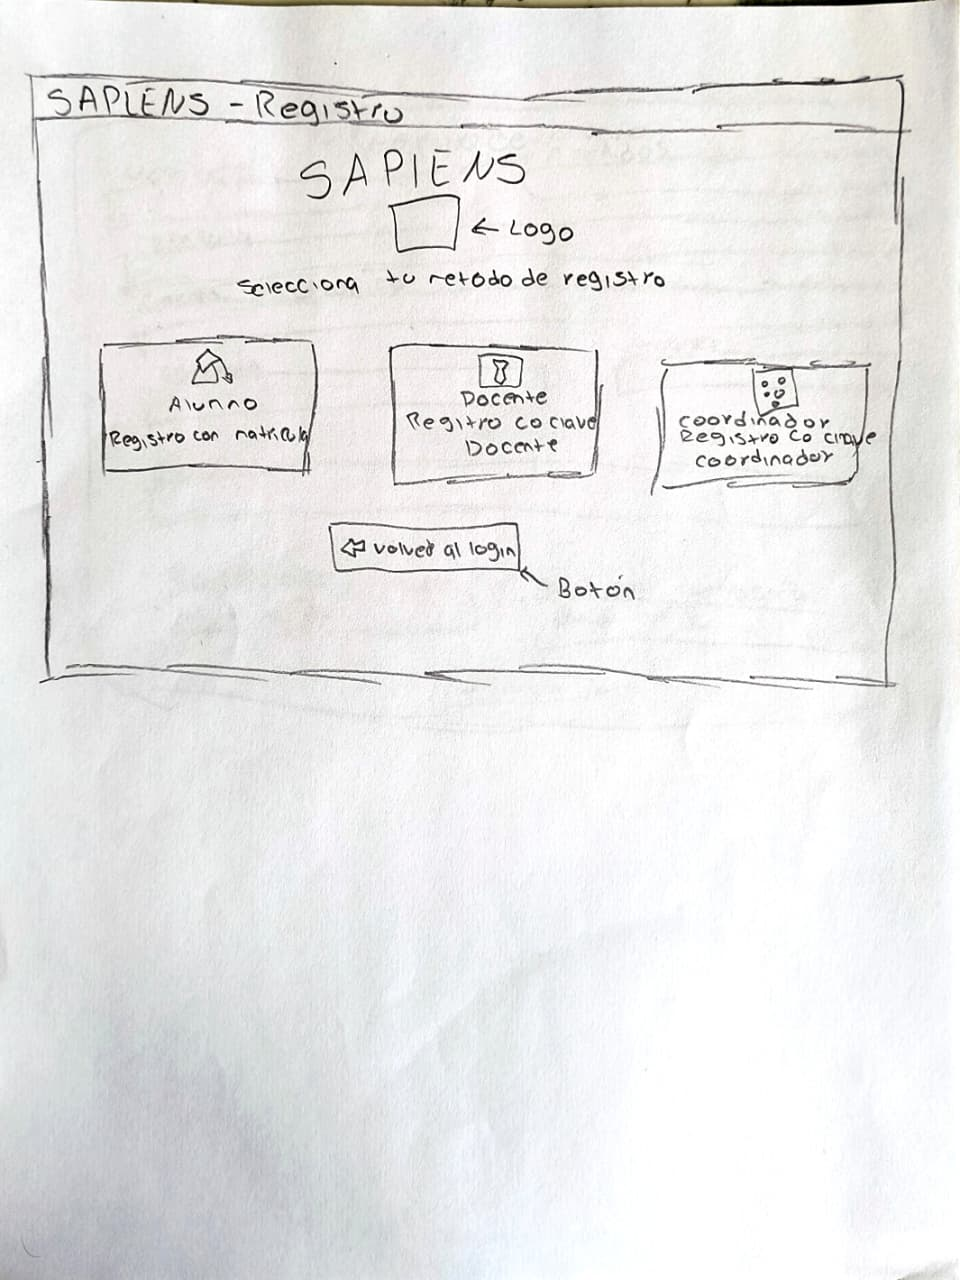 SAPIENS - Registro
SAPIENS
← Logo
Selecciona tu metodo de registro
Alumno
Registro con matricula
Docente
Registro co clave
Docente
Coordinador
Registro co clave
coordinador
⇦ volver al login
Botón